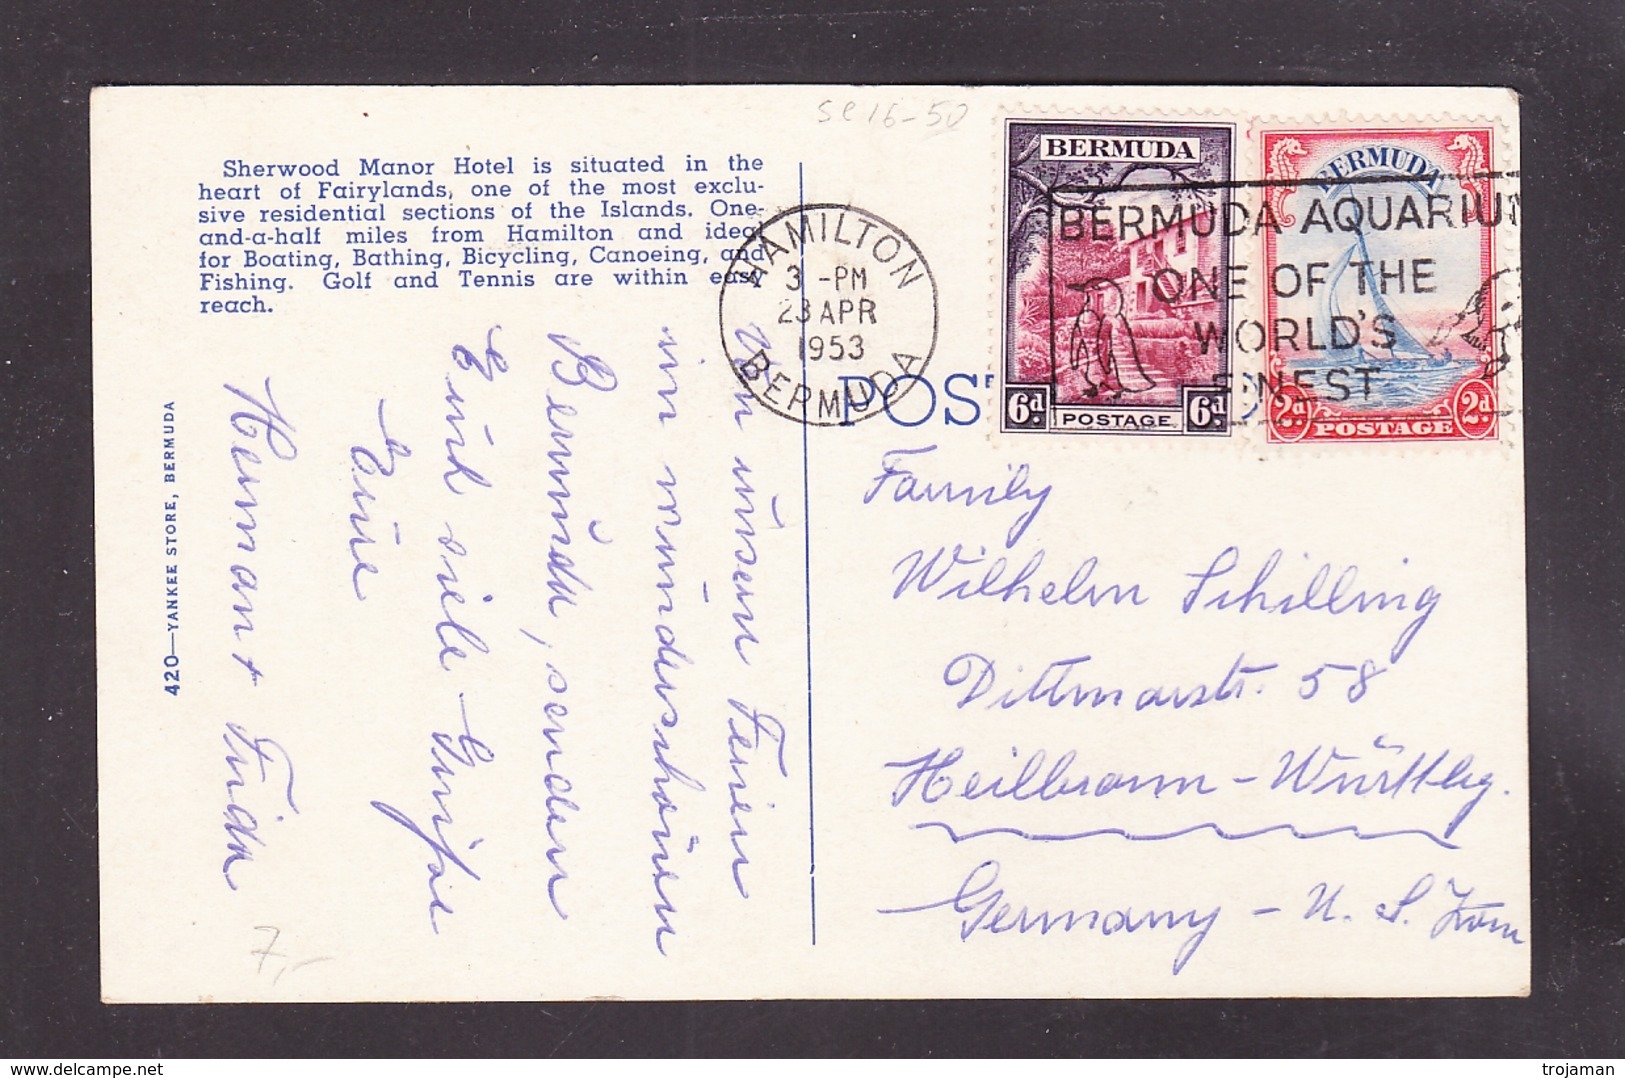 se 16-50
Sherwood Manor Hotel is situated in the
heart of Fairylands, one of the most exclu-
sive residential sections of the Islands. One-
and-a-half miles from Hamilton and ideal
for Boating, Bathing, Bicycling, Canoeing, and
Fishing. Golf and Tennis are within easy
reach.
420—YANKEE STORE, BERMUDA
Von unsern Ferien
im wunderschönen
Bermuda, senden
Euch viele Grüsse
Eure
Herman + Frida
7,-
HAMILTON
3 -PM
23 APR
1953
BERMUDA
BERMUDA
6d POSTAGE 6d
BERMUDA
2d POSTAGE 2d
BERMUDA AQUARIU
ONE OF THE
WORLD'S
FINEST
POST
Family
Wilhelm Schilling
Dittmarstr. 58
Heilbronn - Württbg.
Germany - U. S. Zone
trojaman